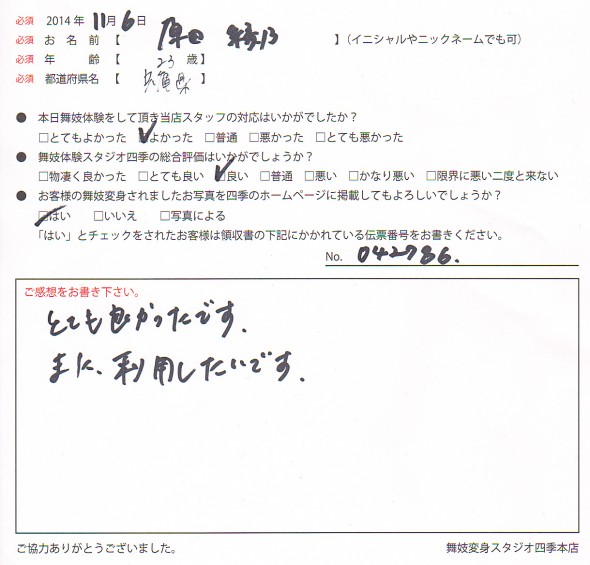 必須 2014年 11月 6日
必須 お名前【 原田 】(イニシャルやニックネームでも可)
必須 年齢【 23 歳】
必須 都道府県名【 県】
● 本日舞妓体験をして頂き当店スタッフの対応はいかがでしたか?
□とてもよかった ☑よかった □普通 □悪かった □とても悪かった
● 舞妓体験スタジオ四季の総合評価はいかがでしょうか?
□物凄く良かった □とても良い ☑良い □普通 □悪い □かなり悪い □限界に悪い二度と来ない
● お客様の舞妓変身されましたお写真を四季のホームページに掲載してもよろしいでしょうか?
☑はい □いいえ □写真による
「はい」とチェックをされたお客様は領収書の下記にかかれている伝票番号をお書きください。
No. 042786.
ご感想をお書き下さい。
とても良かったです.
また、利用したいです.
ご協力ありがとうございました。
舞妓変身スタジオ四季本店